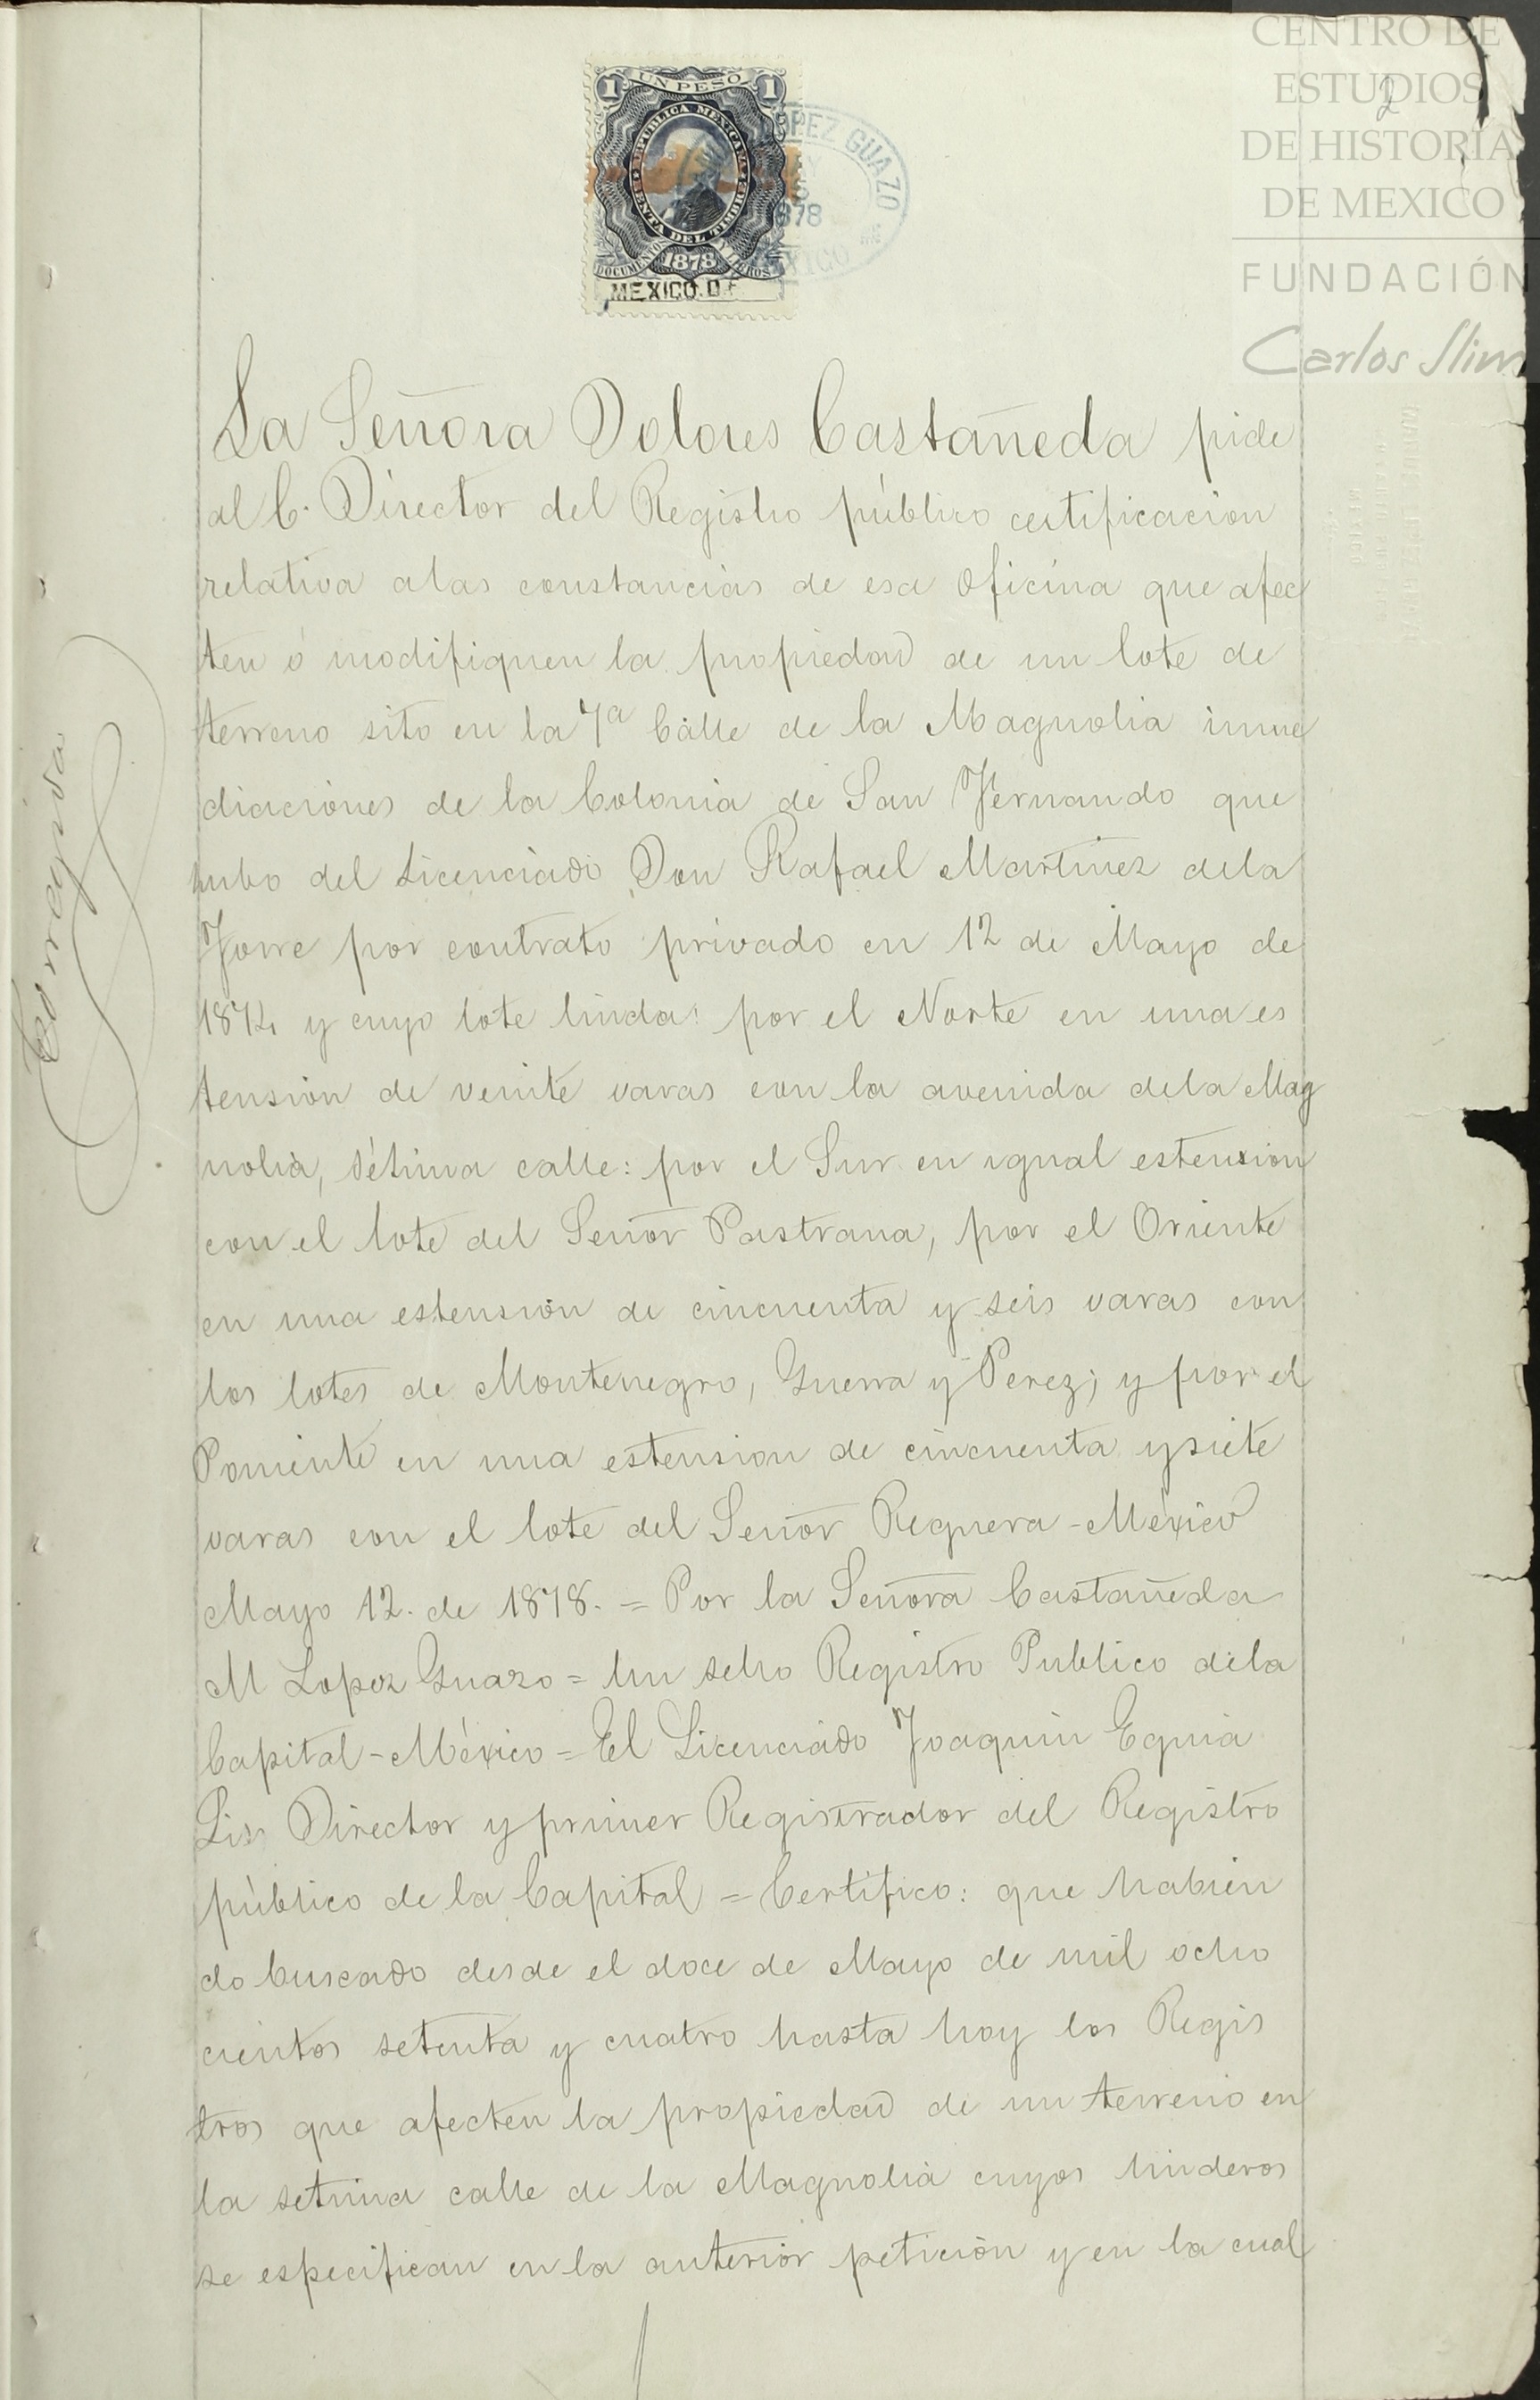 CENTRO DE
ESTUDIOS
DE HISTORIA
DE MEXICO
FUNDACIÓN
Carlos Slim
2
1 UN PESO 1
REPUBLICA MEXICANA
RENTA DEL TIMBRE
DOCUMENTOS Y LIBROS
1878
MEXICO. D.F.
LOPEZ GUAZO
1878
MEXICO
La Señora Dolores Castañeda pide
al C. Director del Registro público certificacion
relativa alas constancias de esa oficina que afec
ten ó modifiquen la propiedad de un lote de
terreno sito en la 7a Calle de la Magnolia inme
diaciones de la Colonia de San Fernando que
hubo del Licenciado Don Rafael Martinez dela
Torre por contrato privado en 12 de Mayo de
1874 y cuyo lote linda: por el Norte en una es
tension de veinte varas con la avenida dela Mag
nolia, sétima calle: por el Sur en igual estension
con el lote del Señor Pastrana, por el Oriente
en una estension de cincuenta y seis varas con
los lotes de Montenegro, Guerra y Perez; y por el
Poniente en una estension de cincuenta y siete
varas con el lote del Señor Reguera - México
Mayo 12. de 1878. = Por la Señora Castañeda
M Lopez Guazo = Un sello Registro Publico dela
Capital - México = El Licenciado Joaquin Eguia
Lis Director y primer Registrador del Registro
público de la Capital = Certifico: que habien
do buscado desde el doce de Mayo de mil ocho
cientos setenta y cuatro hasta hoy los Regis
tros que afecten la propiedad de un terreno en
la setima calle de la Magnolia cuyos linderos
se especifican en la anterior petición y en la cual
Corregida